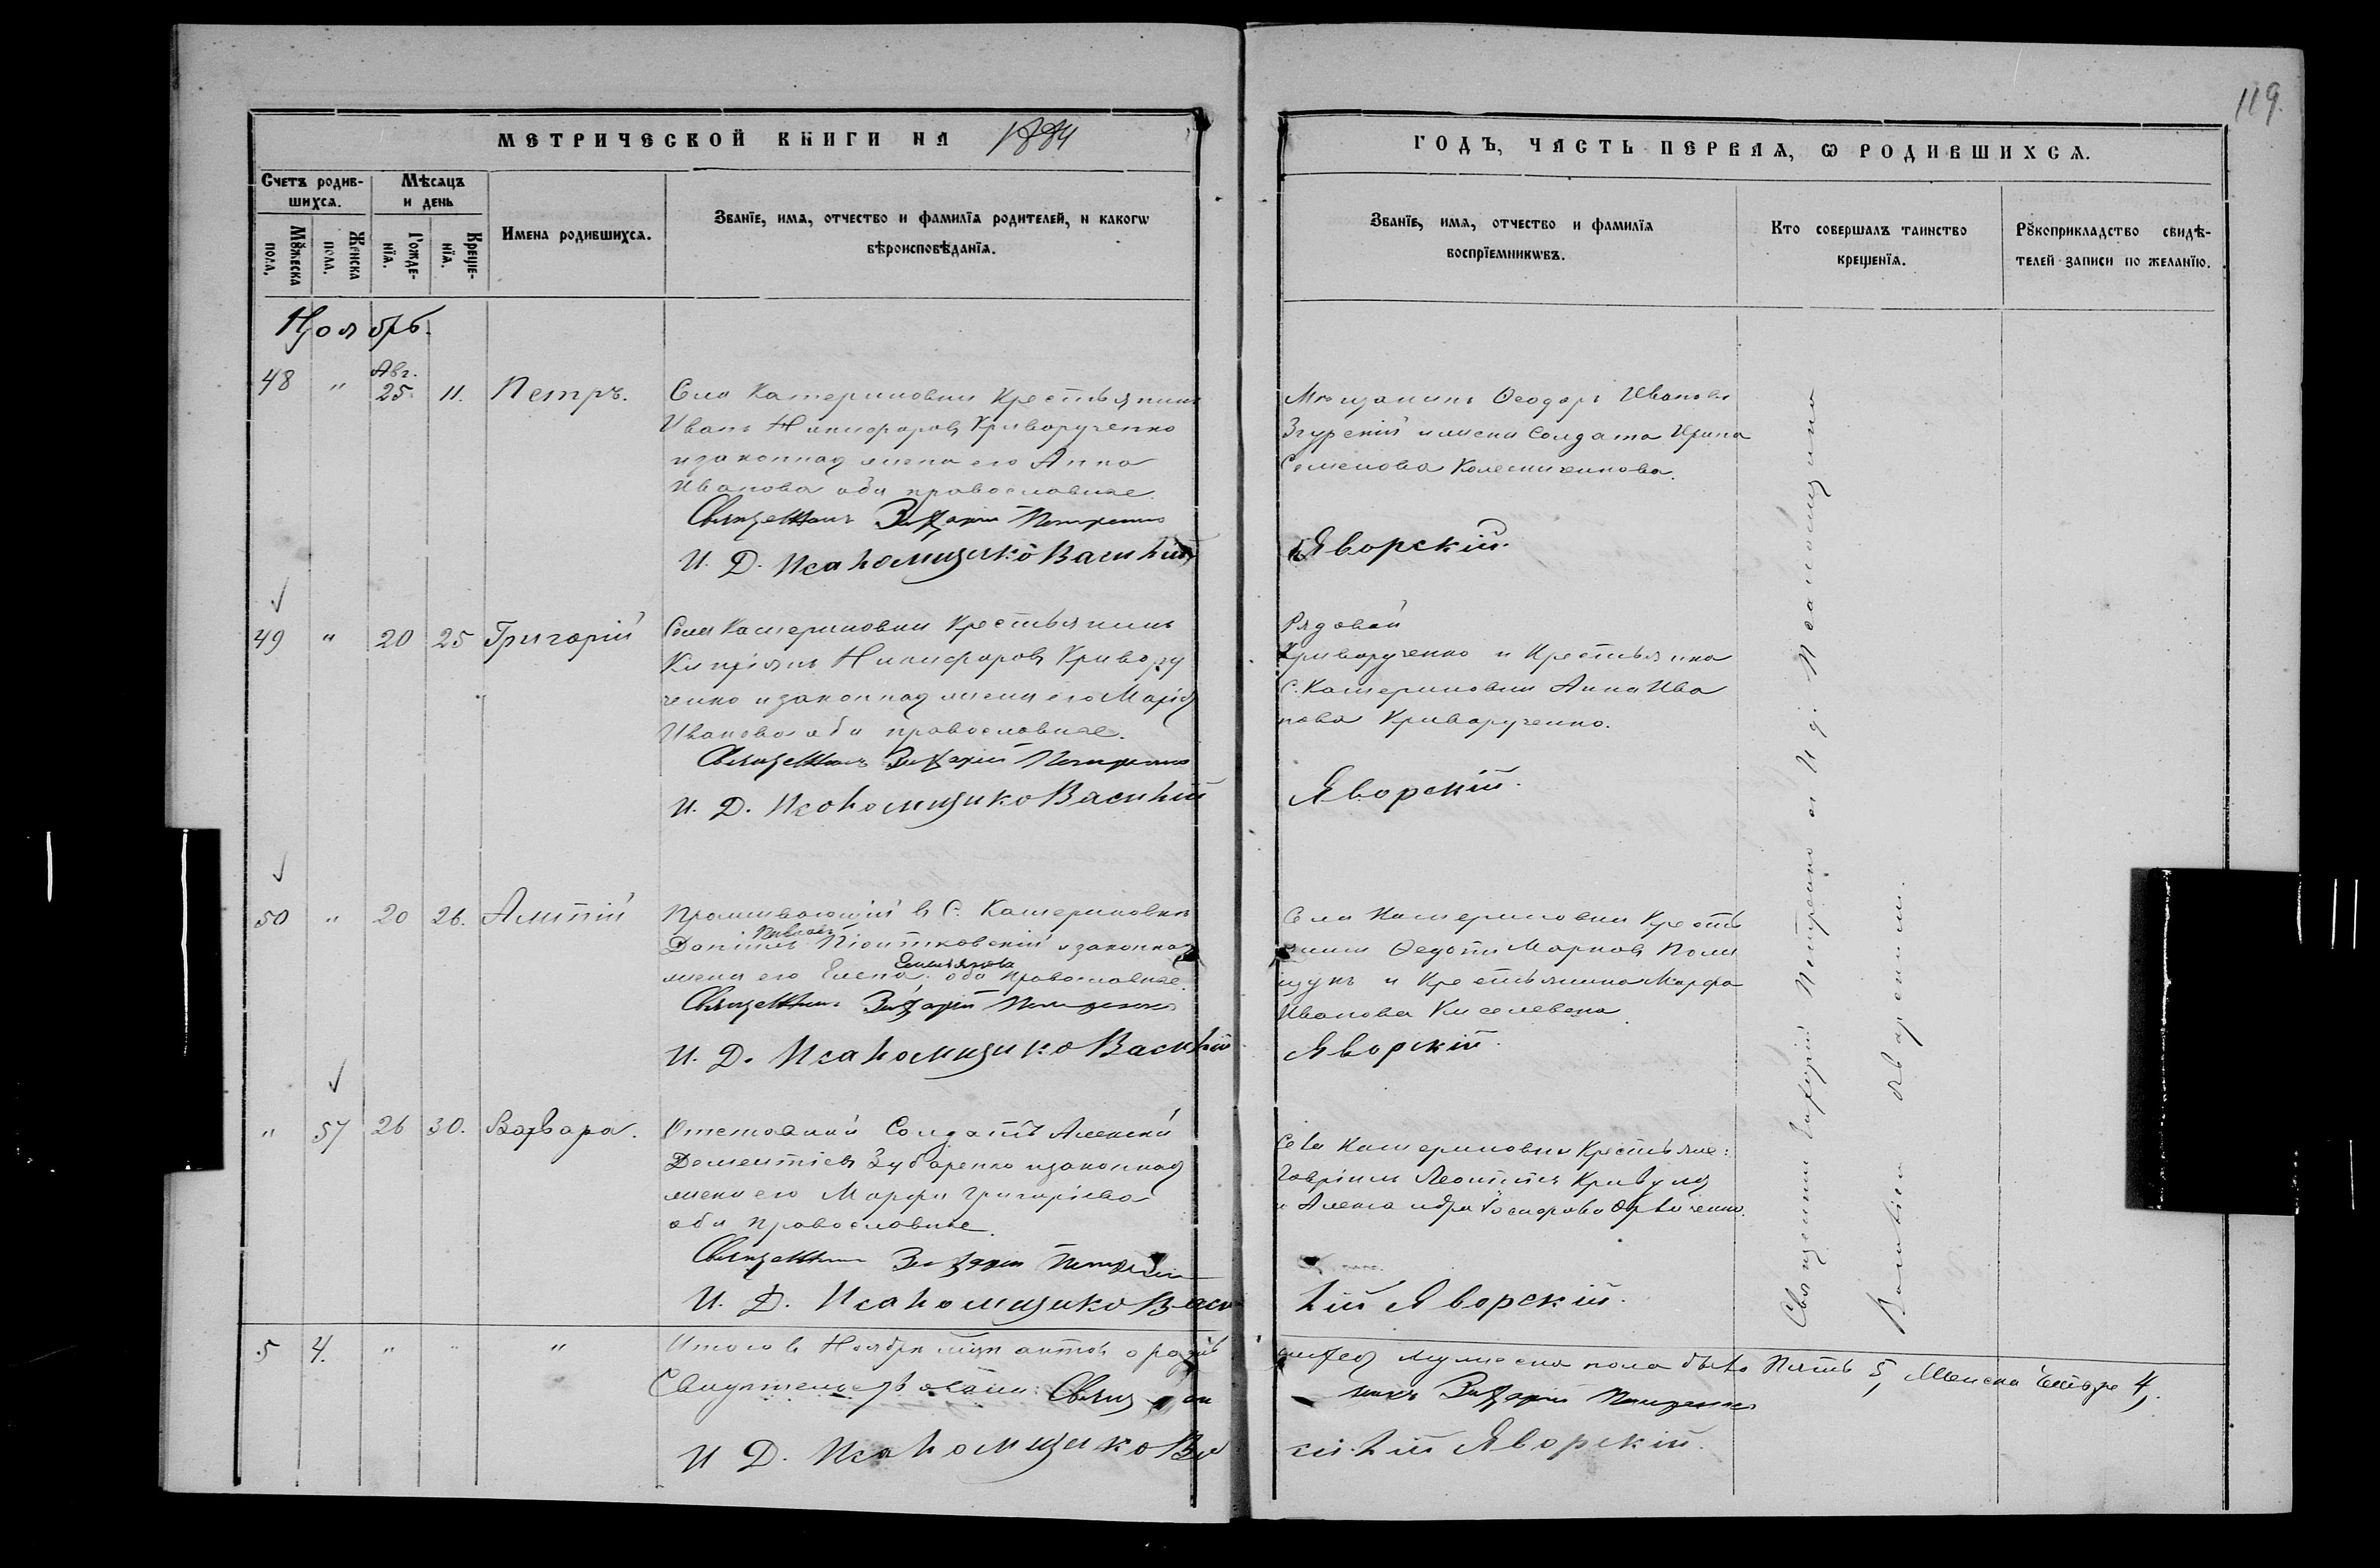 119.
МЕТРИЧЕСКОЙ КНИГИ НА 1884
ГОДЪ, ЧАСТЬ ПЕРВАЯ, Ѡ РОДИВШИХСѦ.
Счетъ родив-
шихсѧ.
Мѣсѧцъ
и день
Мꙋжеска
пола,
Женска
пола.
Рожде-
нїѧ.
Креще-
нїѧ.
Имена родившихсѧ.
Званїе, имѧ, отчество и фамилїѧ родителей, и какогѡ
вѣроисповѣданїѧ.
Званїе, имѧ, отчество и фамилїѧ
воспрїемникѡвъ.
Кто совершалъ таинство
крещенїѧ.
Рꙋкоприкладство свидѣ-
телей записи по желанїю.
Ноябрь.
48 " Авг. 25. 11. Петръ.
Села Катериновки Крестьянинъ
Иванъ Никифоровъ Криворученко
и законная жена его Анна
Иванова оба православные.
Священникъ Захарій Петренко
И. Д. Псаломщика Василій
Мѣщанинъ Ѳеодоръ Ивановъ
Згурскій и жена Солдата Ирина
Семенова Колесникова.
Яворскій.
49 " 20 25 Григорій
Села Катериновки Крестьянинъ
Кипріянъ Никифоровъ Кривору
ченко и законная жена его Марія
Иванова оба православные.
Священникъ Захарій Петренко
И. Д. Псаломщика Василій
Рядовой
Криворученко и Крестьянка
С. Катериновки Анна Ива
нова Криворученко.
Яворскій.
50 " 20 26.
Проживающій въ С. Катериновкѣ
Даніилъ Піотковскій и законная
жена его Елена оба Православные.
Священникъ Захарій Петренко
И. Д. Псаломщика Василій
Села Катериновки Кресть
янинъ Ѳедотъ Марковъ Поли
щукъ и Крестьянка Марфа
Иванова
Яворскій.
" 57 26 30. Варвара.
Отставной Солдатъ Алексѣй
Дементіевъ Зубаренко и законная
жена его Марфа Григоріева
оба Православные.
Священникъ Захарій Петренко
И. Д. Псаломщика Васи
Села Катериновки Крестьяне:
Гавріилъ Леонтіевъ Кривуля
и Александра
лій Яворскій.
Священникъ Захарій Петренко и И. д. Псаломщика
Василій Яворскій.
5 4. " " "
Итого в Ноябрѣ мѣс. актовъ о родив
шихся мужеска пола было Пять 5, Женска Четыре 4,
Священ
никъ Захарій Петренко
И Д. Псаломщика Ва
силій Яворскій.